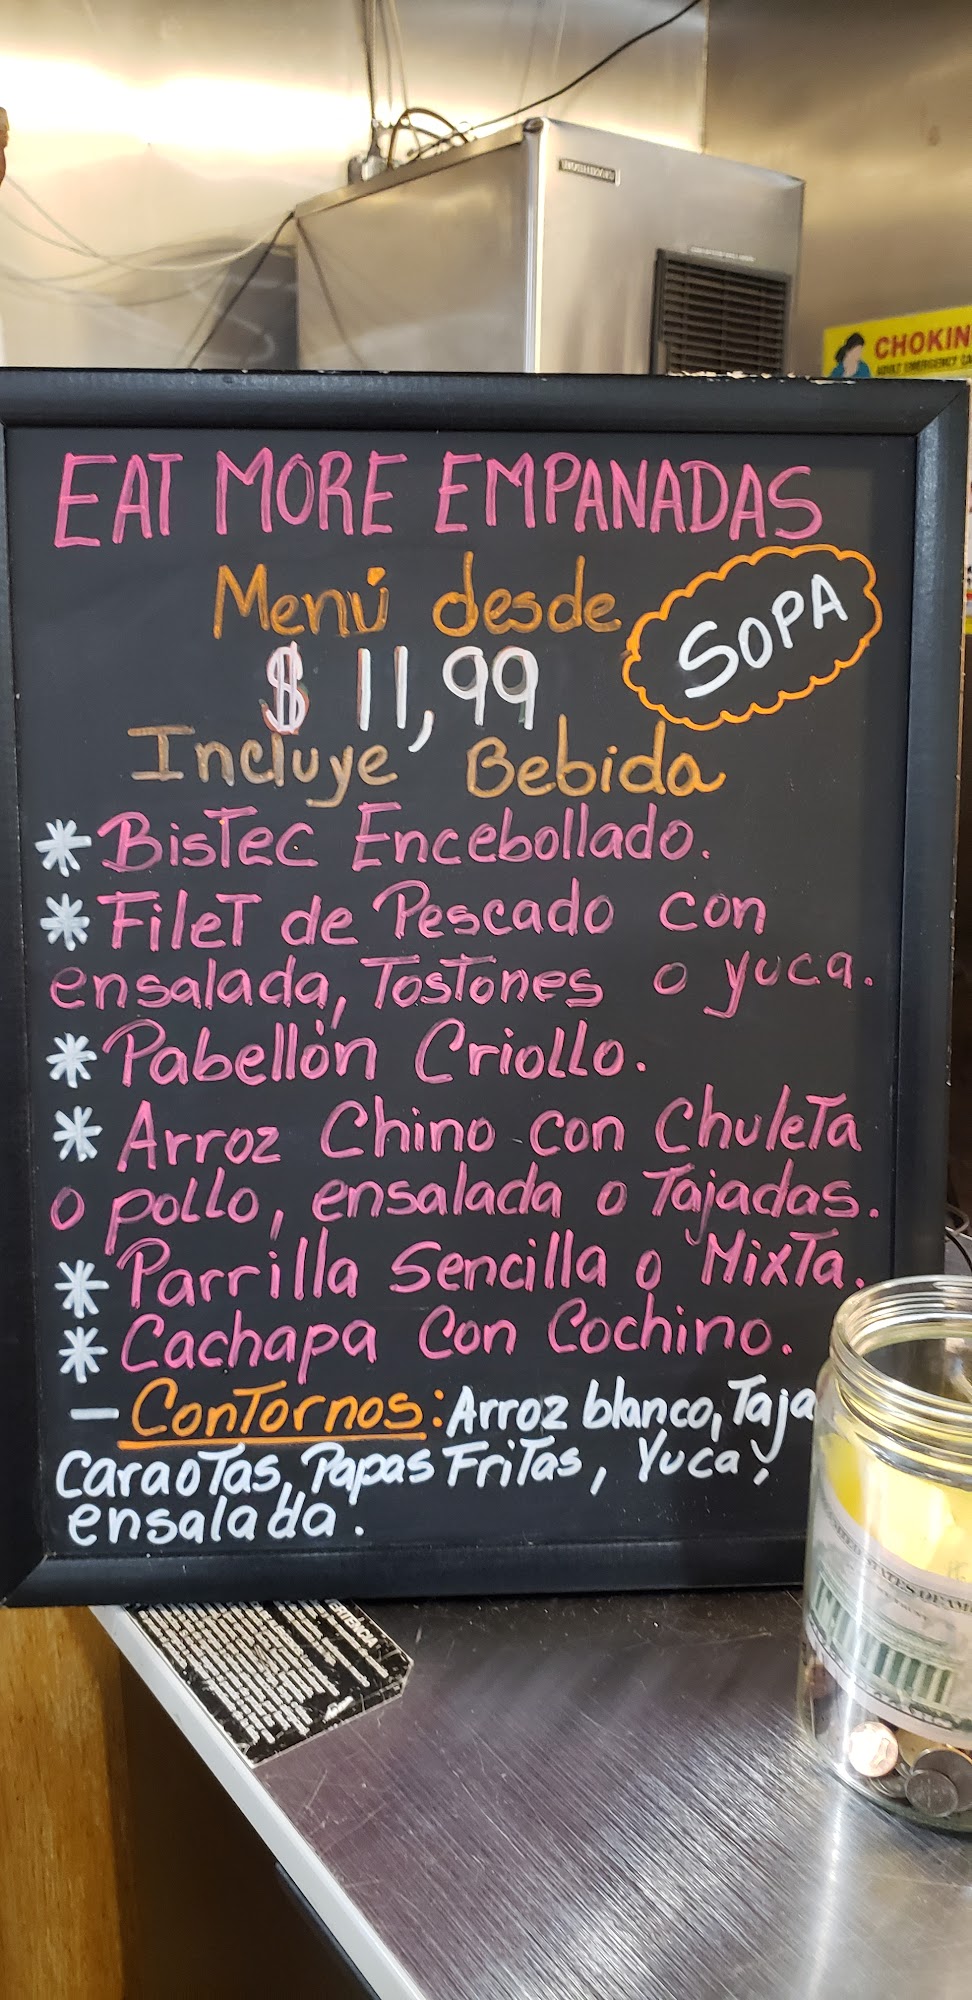 HOSHIZAKI
CHOKIN
EAT MORE EMPANADAS
Menú desde
SOPA
$ 11,99
Incluye Bebida
* Bistec Encebollado.
* Filet de Pescado con
ensalada, Tostones o yuca.
* Pabellón Criollo.
* Arroz Chino con Chuleta
o pollo, ensalada o Tajadas.
* Parrilla Sencilla o Mixta.
* Cachapa con Cochino.
- Contornos: Arroz blanco, Taja
Caraotas, Papas Fritas, Yuca,
ensalada.